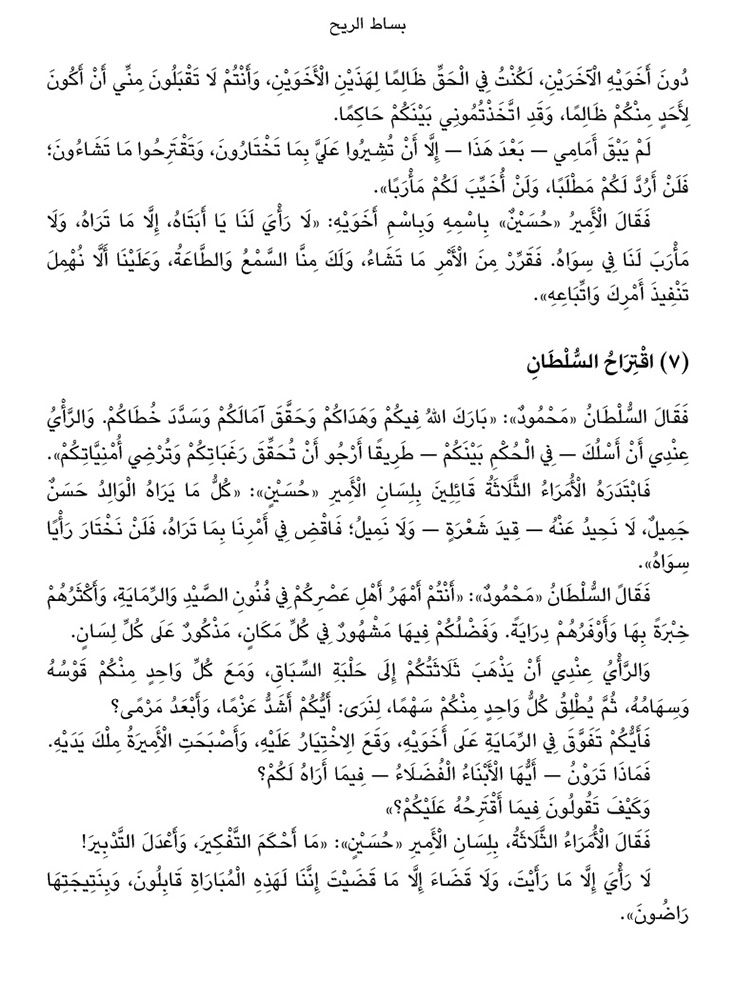 بساط الريح
دُونَ أَخَوَيْهِ الْآخَرَيْنِ، لَكُنْتُ فِي الْحَقِّ ظَالِمًا لِهَذَيْنِ الْأَخَوَيْنِ، وَأَنْتُمْ لَا تَقْبَلُونَ مِنِّي أَنْ أَكُونَ
لِأَحَدٍ مِنْكُمْ ظَالِمًا، وَقَدِ اتَّخَذْتُمُونِي بَيْنَكُمْ حَاكِمًا.
لَمْ يَبْقَ أَمَامِي — بَعْدَ هَذَا — إِلَّا أَنْ تُشِيرُوا عَلَيَّ بِمَا تَخْتَارُونَ، وَتَقْتَرِحُوا مَا تَشَاءُونَ؛
فَلَنْ أَرُدَّ لَكُمْ مَطْلَبًا، وَلَنْ أُخَيِّبَ لَكُمْ مَأْرَبًا».
فَقَالَ الْأَمِيرُ «حُسَيْنٌ» بِاسْمِهِ وَبِاسْمِ أَخَوَيْهِ: «لَا رَأْيَ لَنَا يَا أَبَتَاهُ، إِلَّا مَا تَرَاهُ، وَلَا
مَأْرَبَ لَنَا فِي سِوَاهُ. فَقَرِّرْ مِنَ الْأَمْرِ مَا تَشَاءُ، وَلَكَ مِنَّا السَّمْعُ وَالطَّاعَةُ، وَعَلَيْنَا أَلَّا نُهْمِلَ
تَنْفِيذَ أَمْرِكَ وَاتِّبَاعِهِ».
(٧) اقْتِرَاحُ السُّلْطَانِ
فَقَالَ السُّلْطَانُ «مَحْمُودٌ»: «بَارَكَ اللهُ فِيكُمْ وَهَدَاكُمْ وَحَقَّقَ آمَالَكُمْ وَسَدَّدَ خُطَاكُمْ. وَالرَّأْيُ
عِنْدِي أَنْ أَسْلُكَ — فِي الْحُكْمِ بَيْنَكُمْ — طَرِيقًا أَرْجُو أَنْ تُحَقِّقَ رَغَبَاتِكُمْ وَتُرْضِي أُمْنِيَّاتِكُمْ».
فَابْتَدَرَهُ الْأُمَرَاءُ الثَّلَاثَةُ قَائِلِينَ بِلِسَانِ الْأَمِيرِ «حُسَيْنٍ»: «كُلُّ مَا يَرَاهُ الْوَالِدُ حَسَنٌ
جَمِيلٌ، لَا نَحِيدُ عَنْهُ — قِيدَ شَعْرَةٍ — وَلَا نَمِيلُ؛ فَاقْضِ فِي أَمْرِنَا بِمَا تَرَاهُ، فَلَنْ نَخْتَارَ رَأْيًا
سِوَاهُ».
فَقَالَ السُّلْطَانُ «مَحْمُودٌ»: «أَنْتُمْ أَمْهَرُ أَهْلِ عَصْرِكُمْ فِي فُنُونِ الصَّيْدِ وَالرِّمَايَةِ، وَأَكْثَرُهُمْ
خِبْرَةً بِهَا وَأَوْفَرُهُمْ دِرَايَةً. وَفَضْلُكُمْ فِيهَا مَشْهُورٌ فِي كُلِّ مَكَانٍ، مَذْكُورٌ عَلَى كُلِّ لِسَانٍ.
وَالرَّأْيُ عِنْدِي أَنْ يَذْهَبَ ثَلَاثَتُكُمْ إِلَى حَلْبَةِ السِّبَاقِ، وَمَعَ كُلِّ وَاحِدٍ مِنْكُمْ قَوْسُهُ
وَسِهَامُهُ، ثُمَّ يُطْلِقُ كُلُّ وَاحِدٍ مِنْكُمْ سَهْمًا، لِنَرَى: أَيُّكُمْ أَشَدُّ عَزْمًا، وَأَبْعَدُ مَرْمًى؟
فَأَيُّكُمْ تَفَوَّقَ فِي الرِّمَايَةِ عَلَى أَخَوَيْهِ، وَقَعَ الِاخْتِيَارُ عَلَيْهِ، وَأَصْبَحَتِ الْأَمِيرَةُ مِلْكَ يَدَيْهِ.
فَمَاذَا تَرَوْنُ — أَيُّهَا الْأَبْنَاءُ الْفُضَلَاءُ — فِيمَا أَرَاهُ لَكُمْ؟
وَكَيْفَ تَقُولُونَ فِيمَا أَقْتَرِحُهُ عَلَيْكُمْ؟»
فَقَالَ الْأُمَرَاءُ الثَّلَاثَةُ، بِلِسَانِ الْأَمِيرِ «حُسَيْنٍ»: «مَا أَحْكَمَ التَّفْكِيرَ، وَأَعْدَلَ التَّدْبِيرَ!
لَا رَأْيَ إِلَّا مَا رَأَيْتَ، وَلَا قَضَاءَ إِلَّا مَا قَضَيْتَ إِنَّنَا لَهَذِهِ الْمُبَارَاةِ قَابِلُونَ، وَبِنَتِيجَتِهَا
رَاضُونَ».